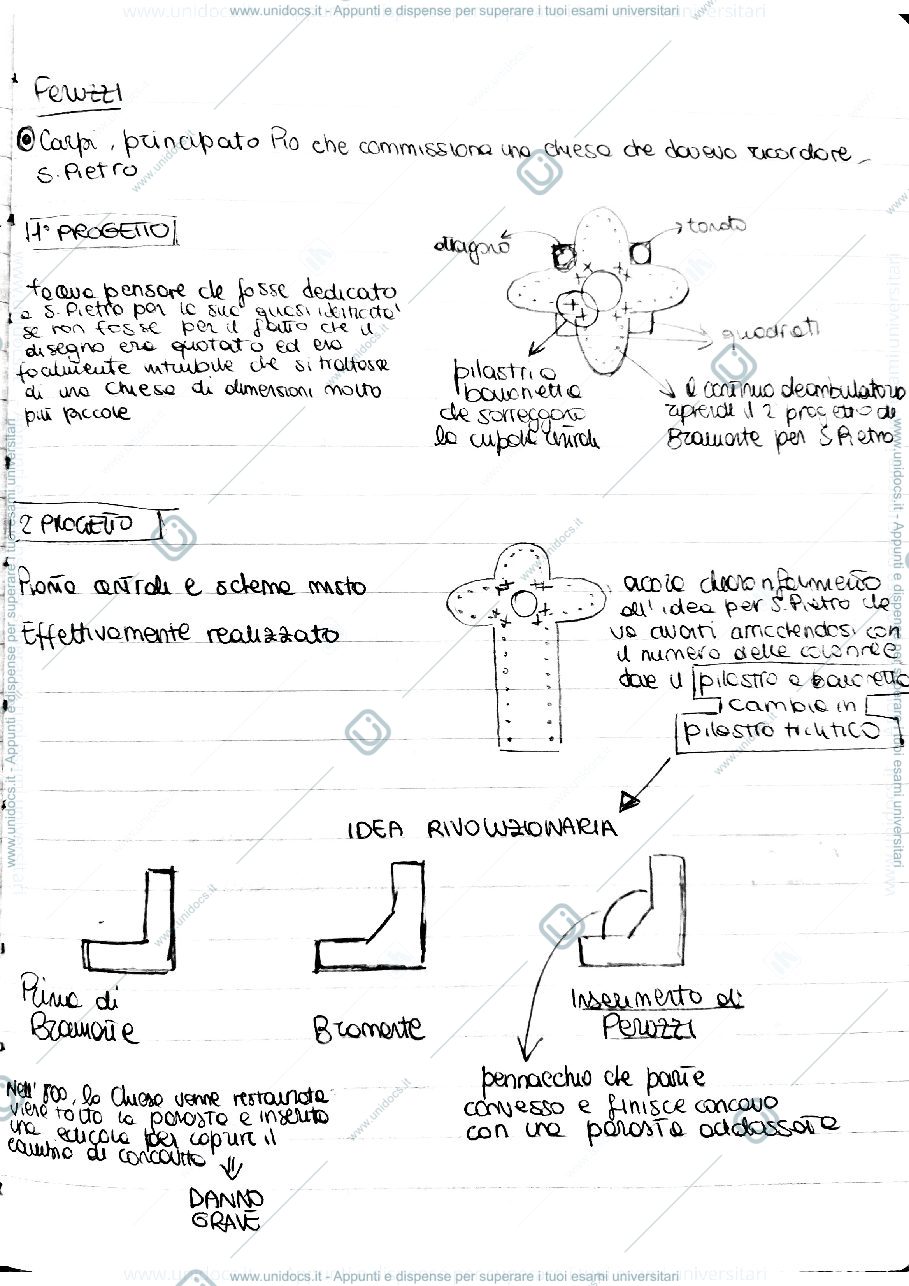 www.unidocs.it - Appunti e dispense per superare i tuoi esami universitari
Peruzzi
Carpi, principato Pio che commissiona una chiesa che doveva ricordare
S. Pietro
1° PROGETTO
faceva pensare che fosse dedicato
a S. Pietro per la sua quasi identicita'
se non fosse per il fatto che il
disegno era quotato ed era
facilmente intuibile che si trattasse
di una chiesa di dimensioni molto
più piccole
ottagono
tondo
quadrati
pilastri a
baionetta
che sorreggono
la cupola centrale
il continuo deambulatorio
riprende il 2 progetto di
Bramante per S Pietro
2 PROGETTO
Pianta centrale e schema misto
Effettivamente realizzato
ancora chiaro riferimento
all'idea per S. Pietro che
va avanti arricchendosi con
il numero delle colonne
dove il pilastro a baionetta
cambia in
pilastro trilitico
IDEA RIVOLUZIONARIA
Prima di
Bramante
Bramante
Inserimento di
Peruzzi
pennacchio che parte
convesso e finisce concavo
con una parasta addossata
Nell'800, la chiesa venne restaurata
viene tolta la parasta e inserita
una edicola per coprire il
cambio di concavità
DANNO
GRAVE
www.unidocs.it - Appunti e dispense per superare i tuoi esami universitari